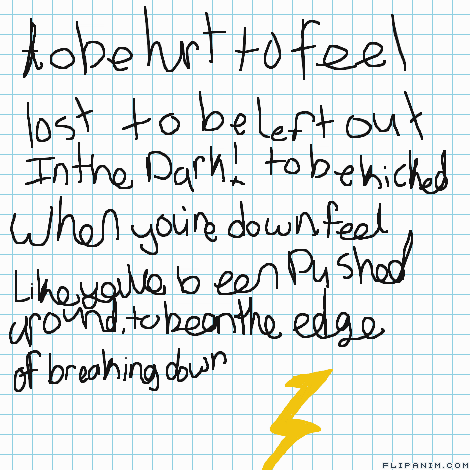 to be hurt to feel
lost to be left out
In the Dark! to be kicked
When you're down feel
Like you've been Pushed
around, to be on the edge
of breaking down
FLIPANIM.COM